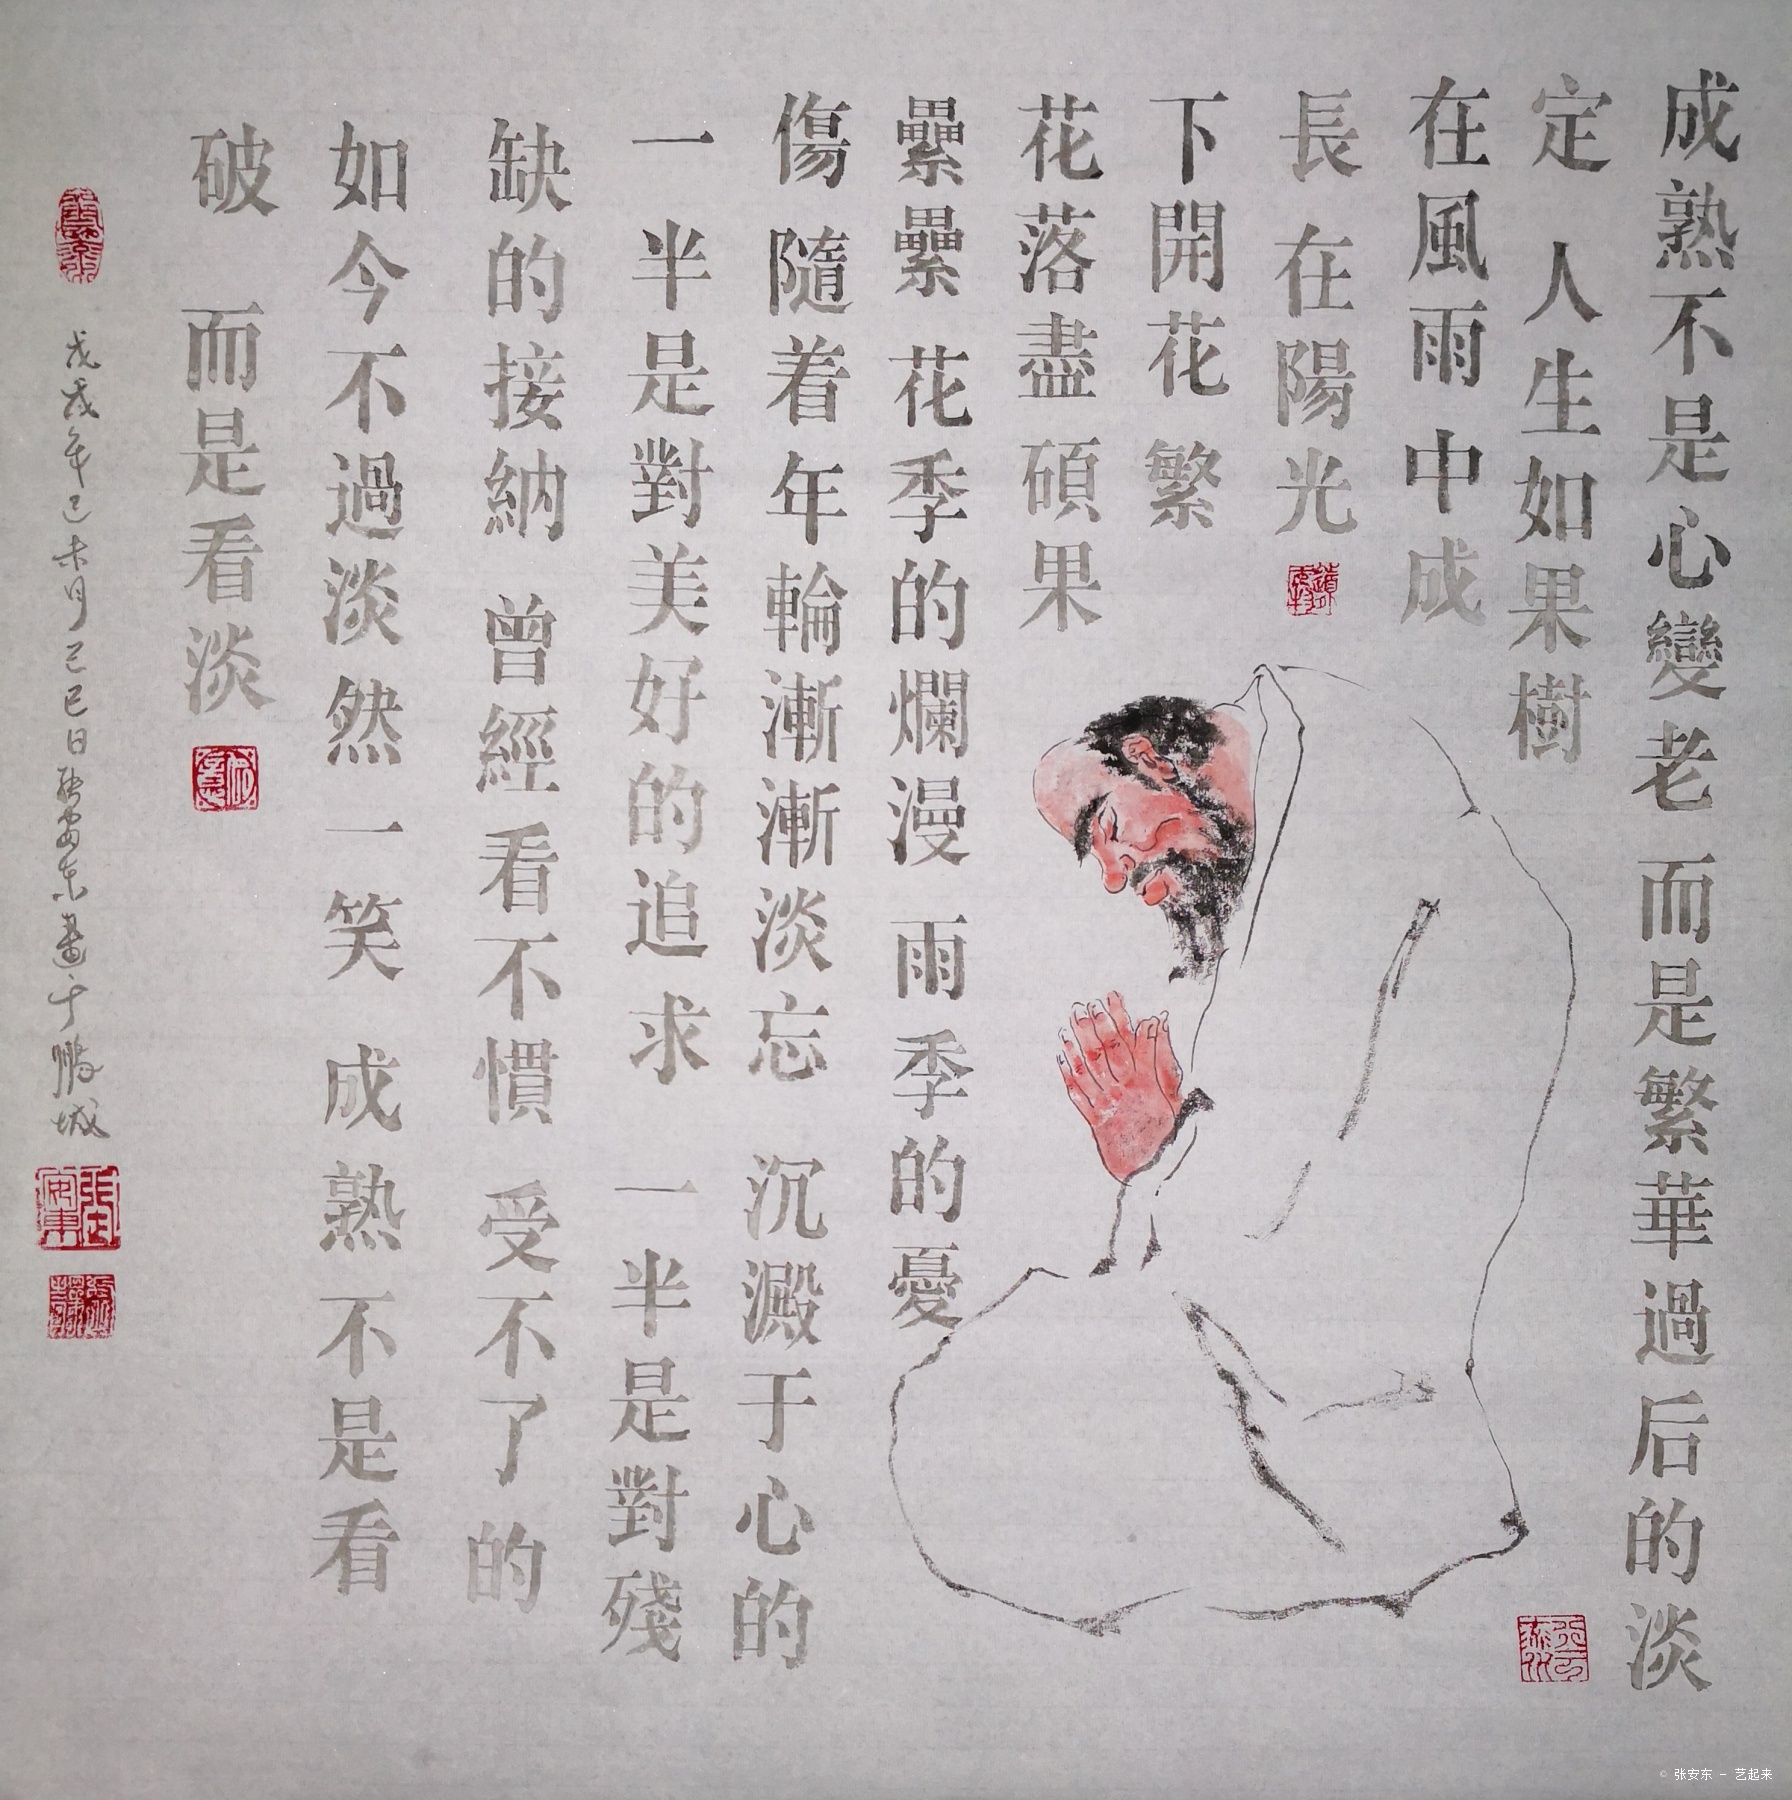 成熟不是心變老 而是繁華過后的淡
定 人生如果樹
在風雨中成
長 在陽光
下開花 繁
花落盡碩果
纍纍 花季的爛漫 雨季的憂
傷 隨着年輪漸漸淡忘 沉澱于心的
一半是對美好的追求 一半是對殘
缺的接納 曾經看不慣 受不了的
如今不過淡然一笑 成熟不是看
破 而是看淡
戊戌年己未月己巳日張安东畫于鵬城
張安東
© 张安东 - 艺起来